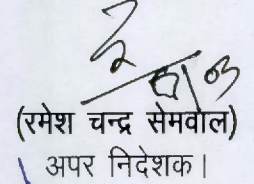 (रमेश चन्द्र सेमवाल)
अपर निदेशक।